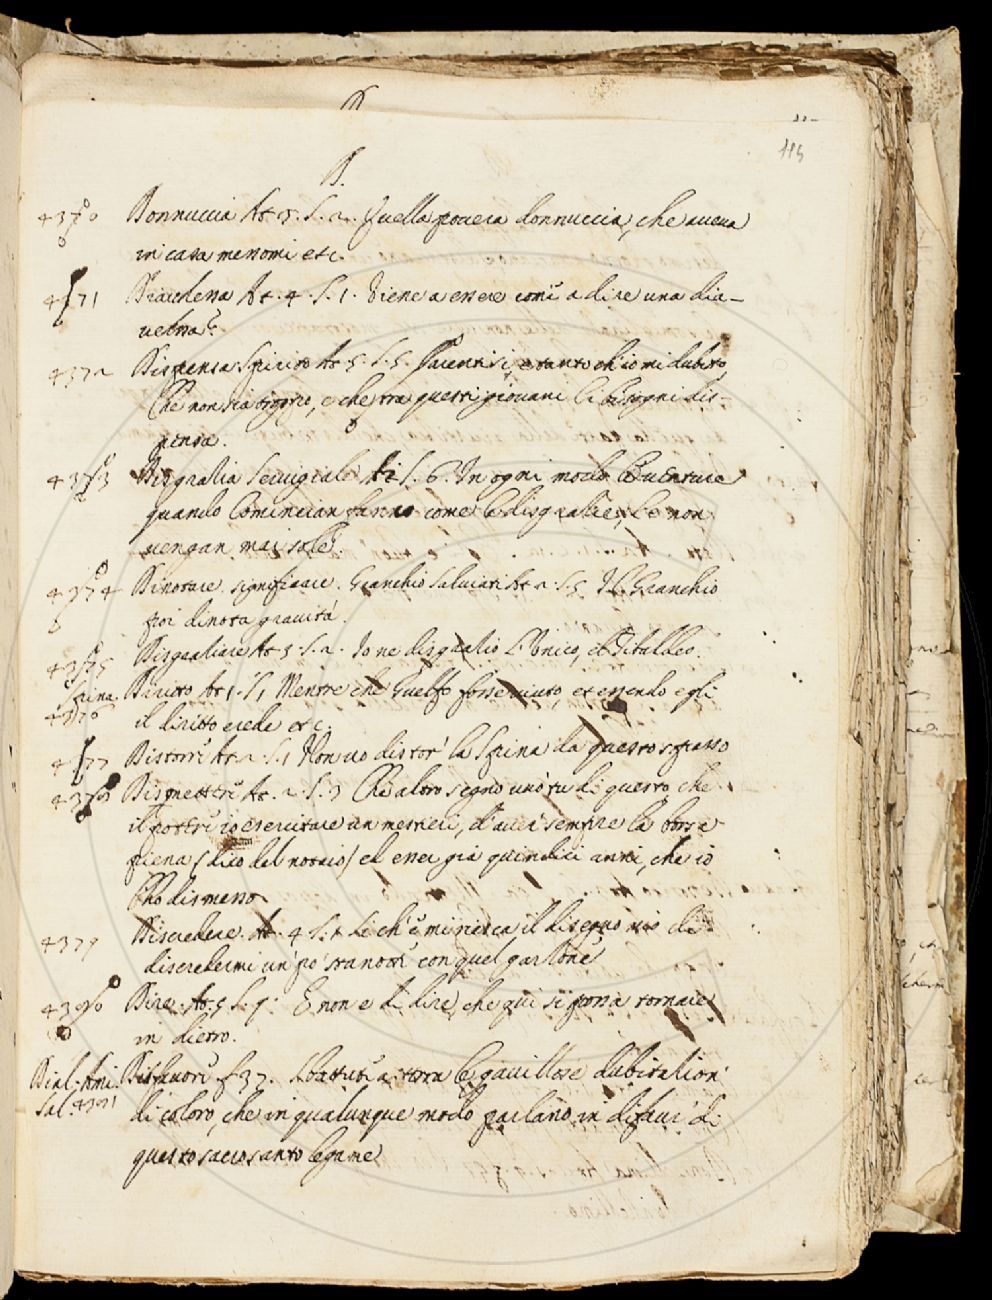 D.
115
4370 Donnuccia At 5. S. 2. Quella povera donnuccia, che aveva
in casa messomi etc.
4371 Diavolessa At. 4. S. 1. Viene a essere come a dire una dia-
4372 Dispensa Spirito At 5. S. 5. e tanto ch'io mi dubito,
Che non sia e che tra questi giovani le bisogni dis-
pensa.
4373 Disgrazia Servigiale At S. 6. In ogni modo le venture
quando comincian fanno come le disgrazie, Le non
vengan mai sole.
4374 Dinotare. significare. Granchio Salviati At 2. S. 5 Il Granchio
poi dinota gravità.
4375 Disgraziare At 5. S. 2. Io ne disgrazio L'Unico, e'l Tibaldeo.
Spina Diritto At 1. S. 1 Mentre che Guelfo forse vinto, et essendo egli
4376 il diritto erede etc.
4377 Distorre At 2. S. 1 Non vo distor' la Spina da questo spasso
4378 Dismettere At. 2. S. 3 Che altro segno vuo' tu di questo, che
il poter io esercitare un mestieri, d'aver sempre la borsa
piena (dico del notaio) ed esser già quindici anni, che io
l'ho dismesso
4379 Discredere. At. 4 S. 1 Se ch'e' mi riesca il disegno mio di
discredermi un po' stanotte con quel garzone
4380 Dire. At. 5 S. 9. E non è di dire, che qui si possa tornare
in dietro.
Dial. Ami. Disfavore f 37. Sbattute a terra le gavillose dubitazion'
Sal. 4381 di coloro, che in qualunque modo parlano in disfavor di
questo sacrosanto legame